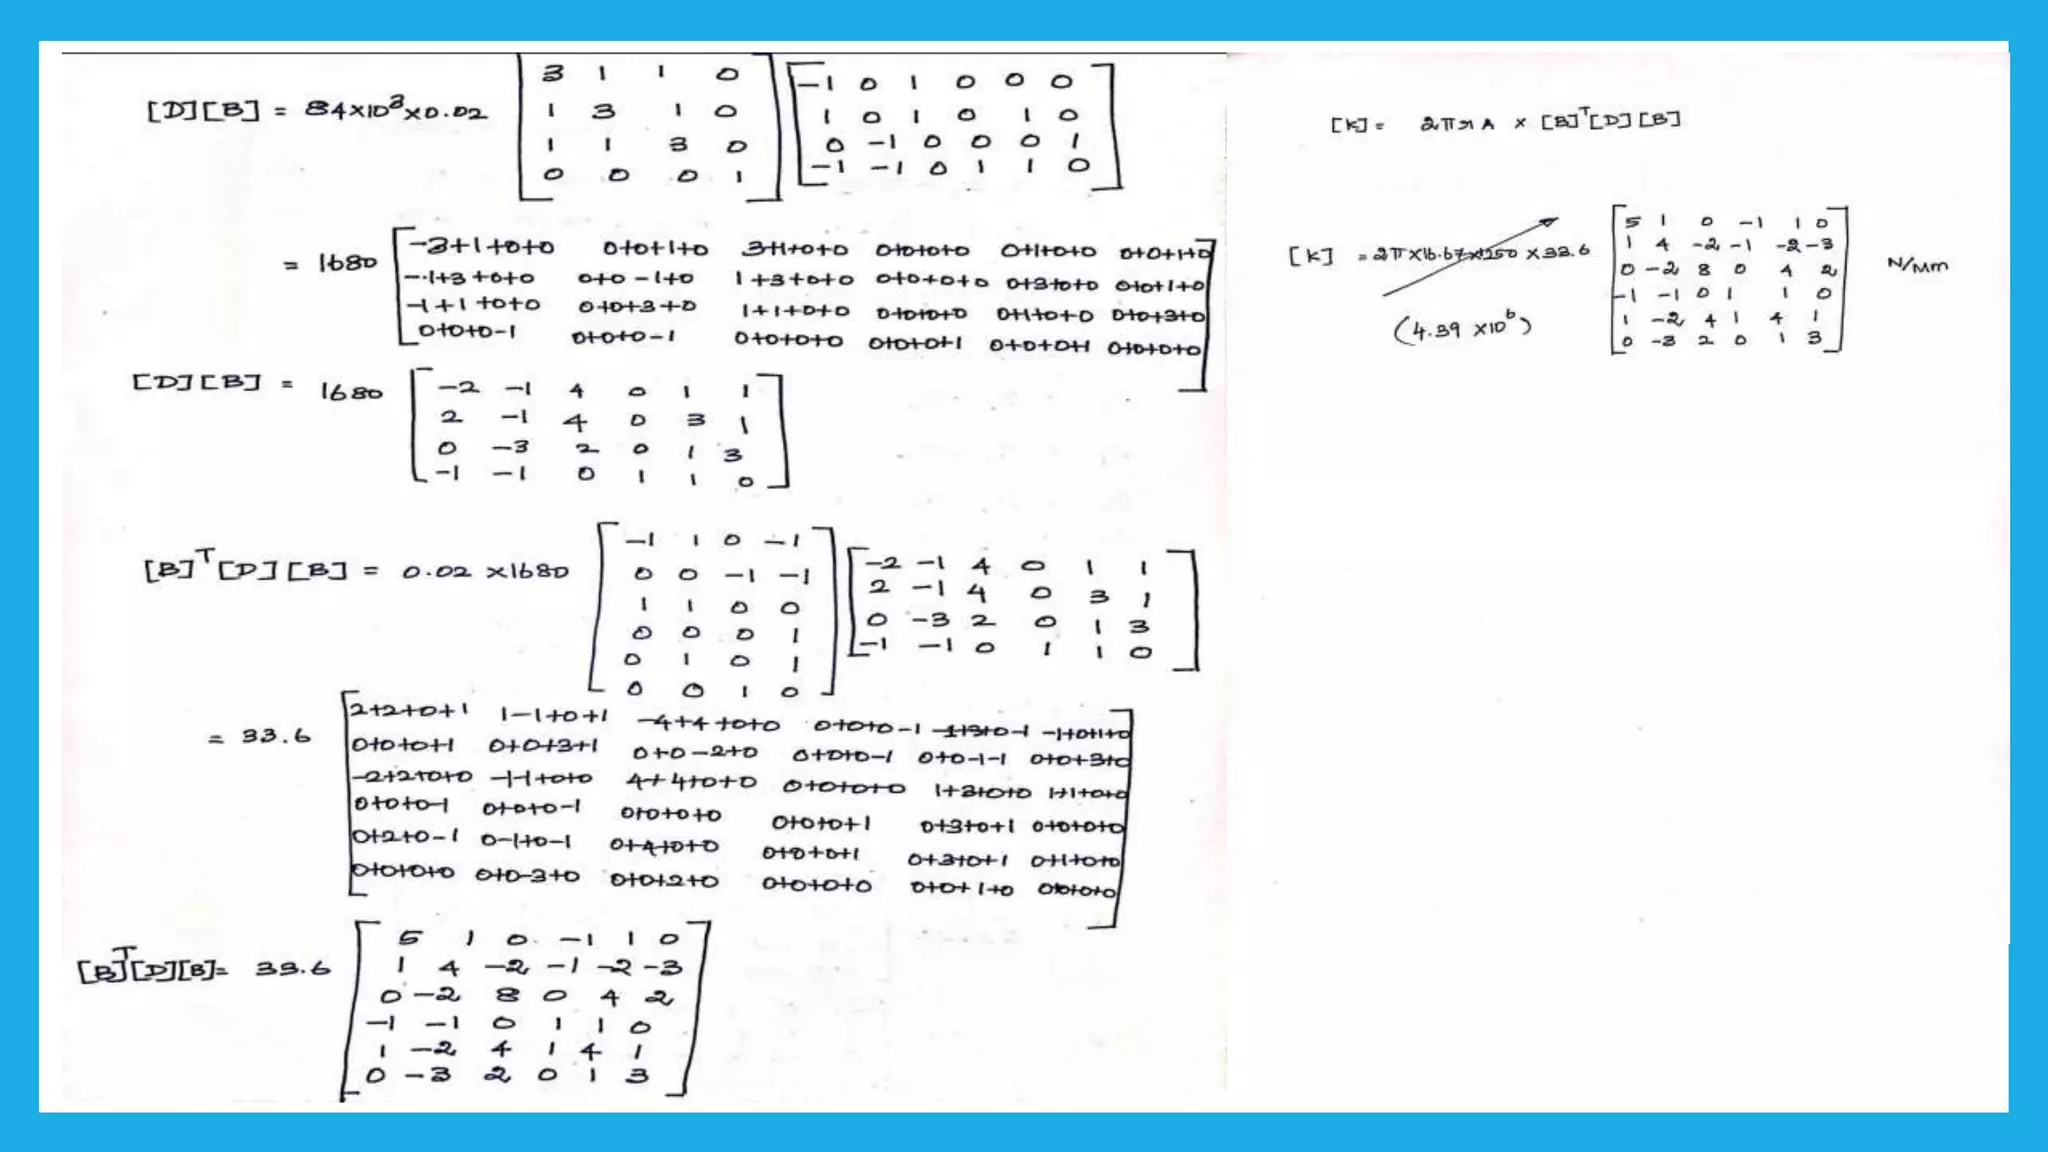 [D][B] = 84×10³×0.02 [3 1 1 0] [-1 0 1 0 0 0]
[1 3 1 0] [1 0 1 0 1 0]
[1 1 3 0] [0 -1 0 0 0 1]
[0 0 0 1] [-1 -1 0 1 1 0]
= 1680 [-3+1+0+0 0+0+1+0 3+1+0+0 0+0+0+0 0+1+0+0 0+0+1+0]
[-1+3+0+0 0+0-1+0 1+3+0+0 0+0+0+0 0+3+0+0 0+0+1+0]
[-1+1+0+0 0+0+3+0 1+1+0+0 0+0+0+0 0+1+0+0 0+0+3+0]
[0+0+0-1 0+0+0-1 0+0+0+0 0+0+0+1 0+0+0+1 0+0+0+0]
[D][B] = 1680 [-2 -1 4 0 1 1]
[2 -1 4 0 3 1]
[0 -3 2 0 1 3]
[-1 -1 0 1 1 0]
[B]ᵀ[D][B] = 0.02 ×1680 [-1 1 0 -1] [-2 -1 4 0 1 1]
[0 0 -1 -1] [2 -1 4 0 3 1]
[1 1 0 0] [0 -3 2 0 1 3]
[0 0 0 1] [-1 -1 0 1 1 0]
[0 1 0 1]
[0 0 1 0]
= 33.6 [2+2+0+1 1-1+0+1 -4+4+0+0 0+0+0-1 -1+3+0-1 -1+0+1+0]
[0+0+0+1 0+0+3+1 0+0-2+0 0+0+0-1 0+0-1-1 0+0+3+0]
[-2+2+0+0 -1-1+0+0 4+4+0+0 0+0+0+0 1+3+0+0 1+1+0+0]
[0+0+0-1 0+0+0-1 0+0+0+0 0+0+0+1 0+3+0+1 0+0+0+0]
[0+2+0-1 0-1+0-1 0+4+0+0 0+0+0+1 0+3+0+1 0+1+0+0]
[0+0+0+0 0+0-3+0 0+0+2+0 0+0+0+0 0+0+1+0 0+0+0+0]
[B]ᵀ[D][B]= 33.6 [5 1 0 -1 1 0]
[1 4 -2 -1 -2 -3]
[0 -2 8 0 4 2]
[-1 -1 0 1 1 0]
[1 -2 4 1 4 1]
[0 -3 2 0 1 3]
[K] = 2πrA × [B]ᵀ[D][B]
[K] = 2π×16.67×1250×33.6 [5 1 0 -1 1 0] N/mm
[1 4 -2 -1 -2 -3]
[0 -2 8 0 4 2]
[-1 -1 0 1 1 0]
(4.39 ×10⁶) [1 -2 4 1 4 1]
[0 -3 2 0 1 3]